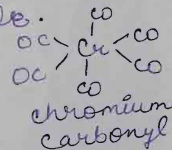 le.
CO
OC Cr CO
OC CO
CO
chromium
carbonyl